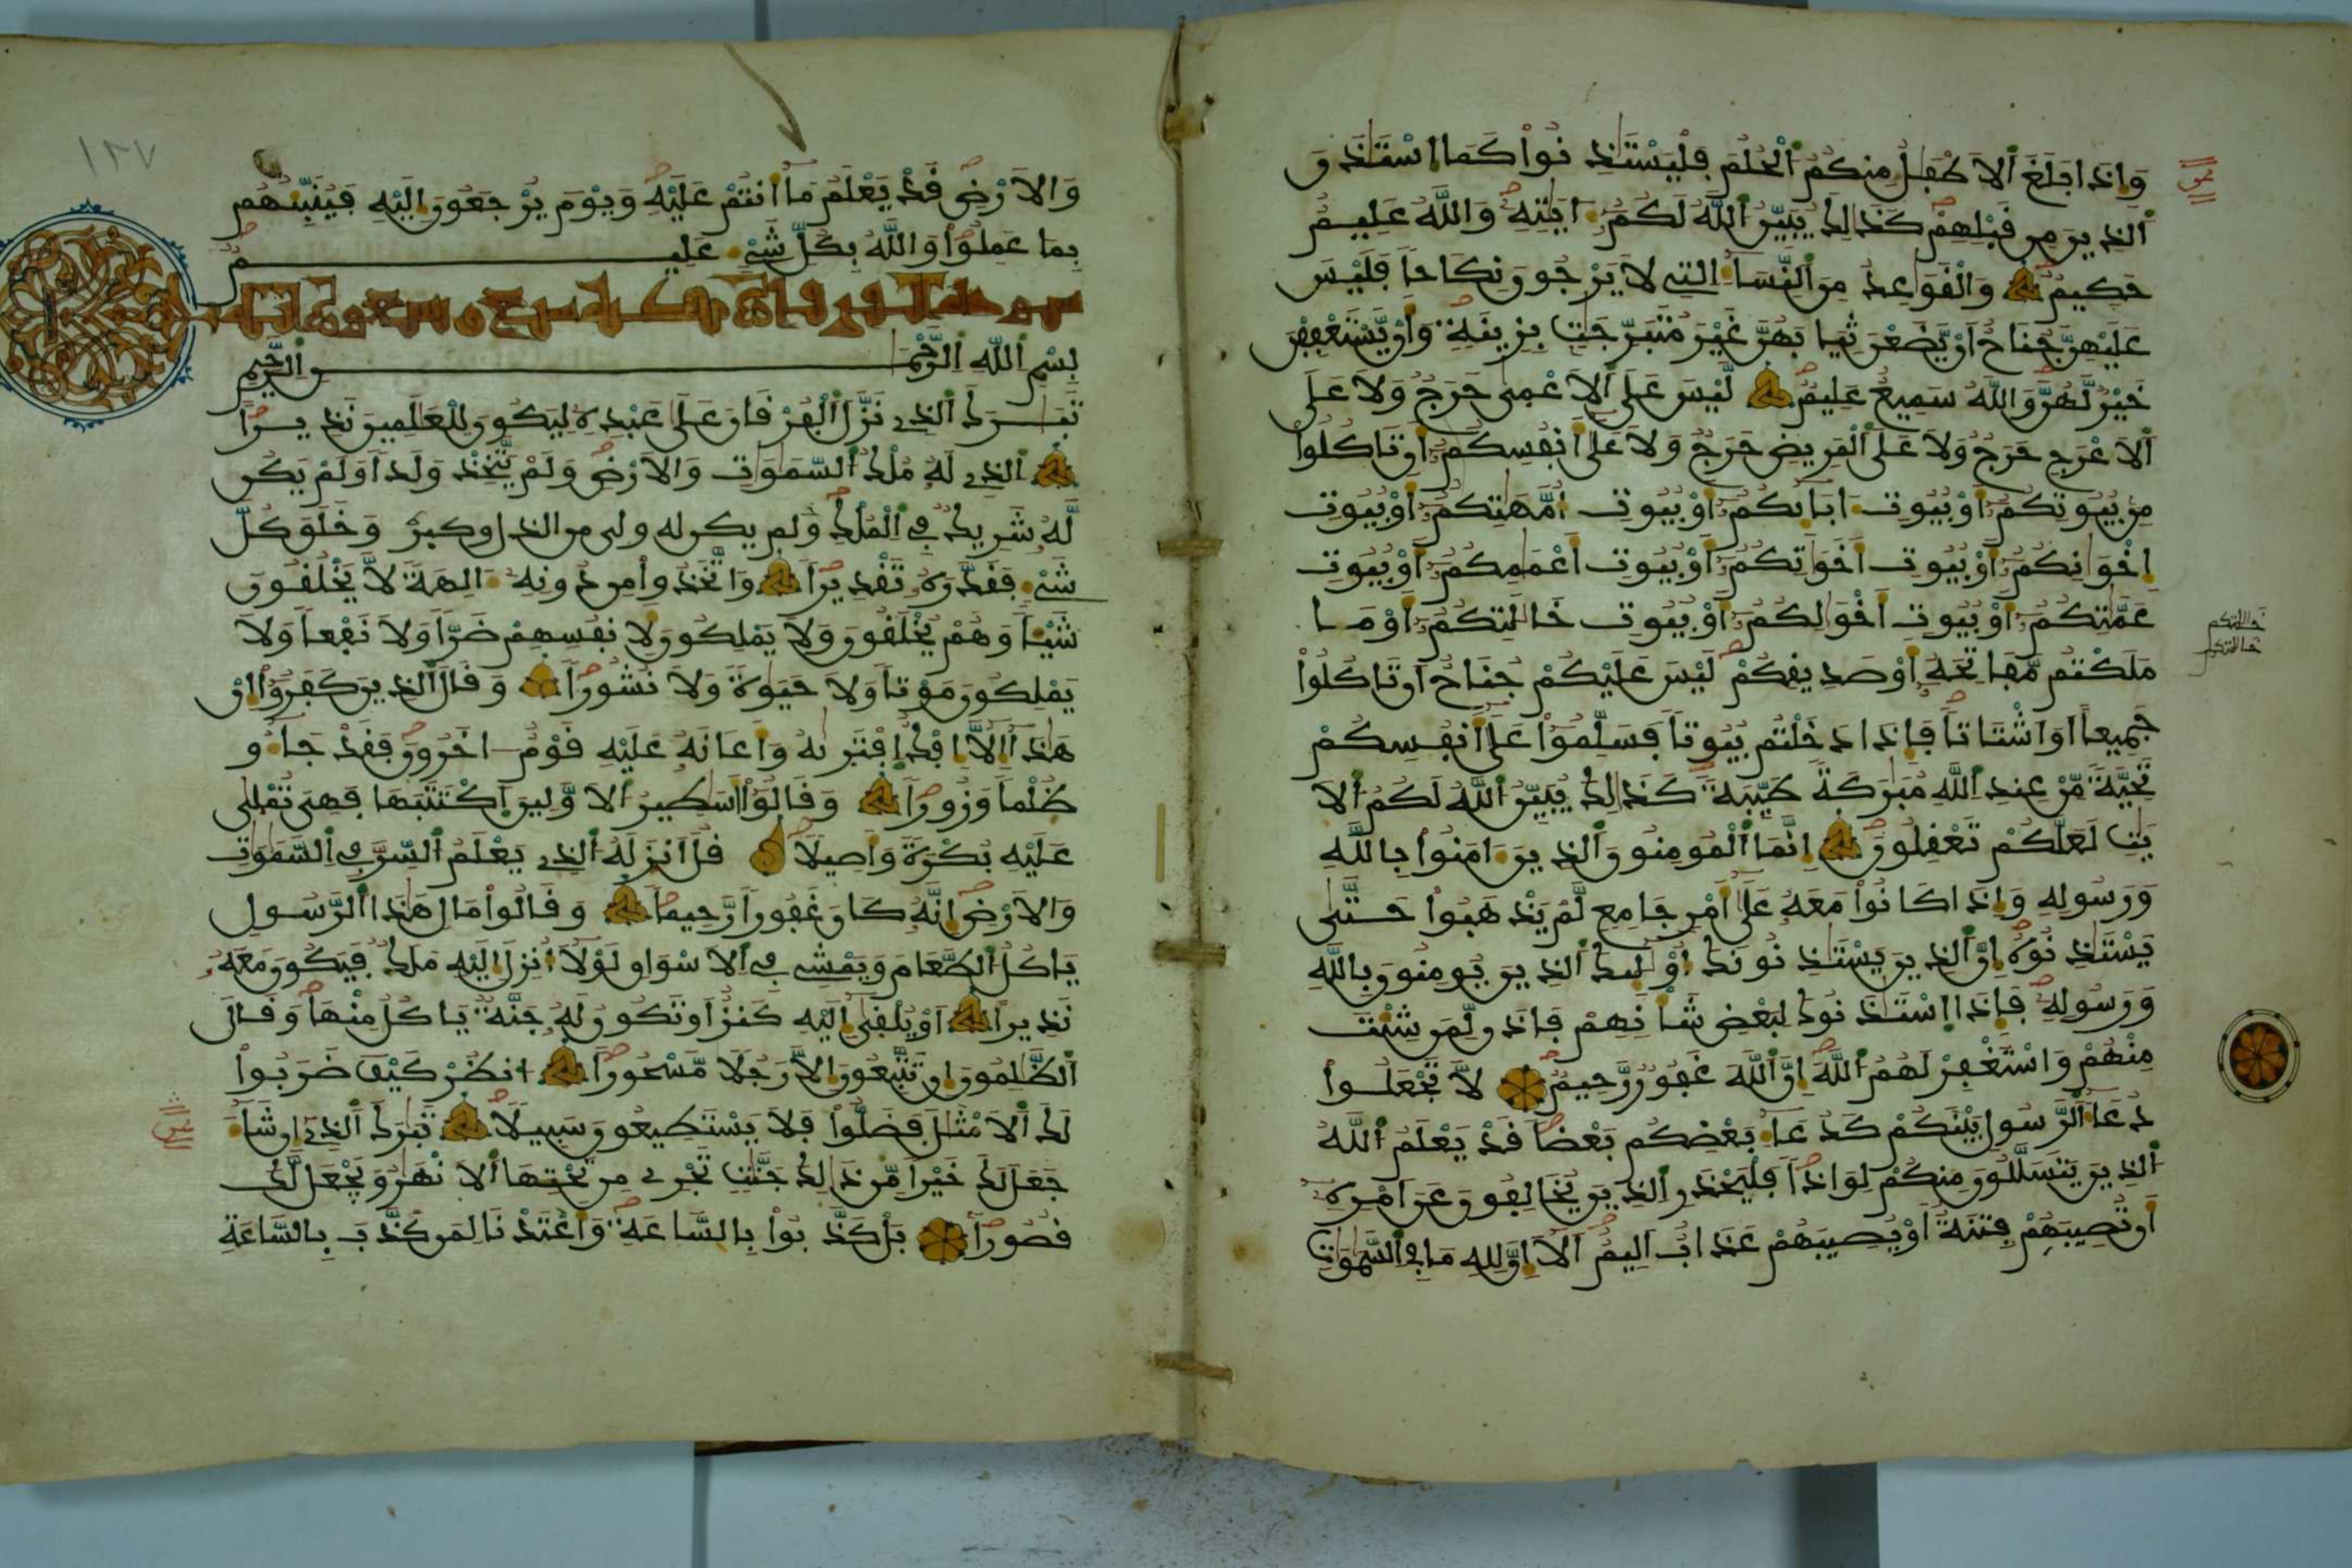 وَإِذَا بَلَغَ اَلَاطْفَٰلُ مِنكُمُ اُلْحُلُمَ فَلْيَسْتَٰذِنُواْ كَمَا اَسْتَٰذَنَ
اَلذِينَ مِن قَبْلِهِمْ كَذَٰلِكَ يُبَيِّنُ اُللَّهُ لَكُمُۥٓ ءَايَٰتِهِۦ وَاللَّهُ عَلِيمٌ
حَكِيمٌ وَالْقَوَٰعِدُ مِنَ اَلنِّسَآءِ اِلتِے لَا يَرْجُونَ نِكَاحاً فَلَيْسَ
عَلَيْهِنَّ جُنَاحٌ اَنْ يَّضَعْنَ ثِيَابَهُنَّ غَيْرَ مُتَبَرِّجَٰتٍ بِزِينَةٍ وَأَنْ يَّسْتَعْفِفْنَ
خَيْرٌ لَّهُنَّ وَاللَّهُ سَمِيعٌ عَلِيمٌ لَّيْسَ عَلَى اَلَاعْمَىٰ حَرَجٌ وَلَا عَلَى
اَلَاعْرَجِ حَرَجٌ وَلَا عَلَى اَلْمَرِيضِ حَرَجٌ وَلَا عَلَىٰٓ أَنفُسِكُمُۥٓ أَن تَاكُلُواْ
مِنۢ بُيُوتِكُمُۥٓ أَوْ بُيُوتِ ءَابَآئِكُمُۥٓ أَوْ بُيُوتِ أُمَّهَٰتِكُمُۥٓ أَوْ بُيُوتِ
إِخْوَٰنِكُمُۥٓ أَوْ بُيُوتِ أَخَوَٰتِكُمُۥٓ أَوْ بُيُوتِ أَعْمَٰمِكُمُۥٓ أَوْ بُيُوتِ
عَمَّٰتِكُمُۥٓ أَوْ بُيُوتِ أَخْوَٰلِكُمُۥٓ أَوْ بُيُوتِ خَالَٰتِكُمُۥٓ أَوْ مَا
مَلَكْتُم مَّفَاتِحَهُۥٓ أَوْ صَدِيقِكُمْ لَيْسَ عَلَيْكُمْ جُنَاحٌ اَن تَاكُلُواْ
جَمِيعاً اَوَ اَشْتَاتاً فَإِذَا دَخَلْتُم بُيُوتاً فَسَلِّمُواْ عَلَىٰٓ أَنفُسِكُمْ
تَحِيَّةً مِّنْ عِندِ اِللَّهِ مُبَٰرَكَةً طَيِّبَةً كَذَٰلِكَ يُبَيِّنُ اُللَّهُ لَكُمُ اُلَا
يَٰتِ لَعَلَّكُمْ تَعْقِلُونَ إِنَّمَا اَلْمُومِنُونَ اَلذِينَ ءَامَنُواْ بِاللَّهِ
وَرَسُولِهِۦ وَإِذَا كَانُواْ مَعَهُۥ عَلَىٰٓ أَمْرٍ جَامِعٍ لَّمْ يَذْهَبُواْ حَتَّىٰ
يَسْتَٰذِنُوهُ إِنَّ اَلذِينَ يَسْتَٰذِنُونَكَ أُوْلَٰٓئِكَ اَلذِينَ يُومِنُونَ بِاللَّهِ
وَرَسُولِهِۦ فَإِذَا اَسْتَٰذَنُوكَ لِبَعْضِ شَأْنِهِمْ فَاذَن لِّمَن شِئْتَ
مِنْهُمْ وَاسْتَغْفِرْ لَهُمُ اُللَّهَ إِنَّ اَللَّهَ غَفُورٌ رَّحِيمٌ لَّا تَجْعَلُواْ
دُعَآءَ اَلرَّسُولِ بَيْنَكُمْ كَدُعَآءِ بَعْضِكُم بَعْضاً قَدْ يَعْلَمُ اُللَّهُ
اُلذِينَ يَتَسَلَّلُونَ مِنكُمْ لِوَاذاً فَلْيَحْذَرِ اِلذِينَ يُخَالِفُونَ عَنَ اَمْرِهِۦٓ
أَن تُصِيبَهُمْ فِتْنَةٌ اَوْ يُصِيبَهُمْ عَذَابٌ اَلِيمٌ اَلَآ إِنَّ لِلهِ مَا فِے اِلسَّمَٰوَٰتِ
خَالَٰتِكم
خالاتكم
١٢٧
وَالَارْضِ قَدْ يَعْلَمُ مَآ أَنتُمْ عَلَيْهِ وَيَوْمَ يُرْجَعُونَ إِلَيْهِ فَيُنَبِّئُهُم
بِمَا عَمِلُواْ وَاللَّهُ بِكُلِّ شَےْءٍ عَلِيمٌ
سورة الفرقان مكية سبع وسبعون اية
بِسْمِ اِللَّهِ اِلرَّحْمَٰنِ اِلرَّحِيمِ
تَبَٰرَكَ اَلذِے نَزَّلَ اَلْفُرْقَانَ عَلَىٰ عَبْدِهِۦ لِيَكُونَ لِلْعَٰلَمِينَ نَذِيراً
اِلذِے لَهُۥ مُلْكُ اُلسَّمَٰوَٰتِ وَالَارْضِ وَلَمْ يَتَّخِذْ وَلَداً وَلَمْ يَكُن
لَّهُۥ شَرِيكٌ فِے اِلْمُلْكِ ولم يكن له ولى من الذل وكبره وَخَلَقَ كُلَّ
شَےْءٍ فَقَدَّرَهُۥ تَقْدِيراً وَاتَّخَذُواْ مِن دُونِهِۦٓ ءَالِهَةً لَّا يَخْلُقُونَ
شَيْـٔاً وَهُمْ يُخْلَقُونَ وَلَا يَمْلِكُونَ لِأَنفُسِهِمْ ضَرّاً وَلَا نَفْعاً وَلَا
يَمْلِكُونَ مَوْتاً وَلَا حَيَوٰةً وَلَا نُشُوراً وَقَالَ اَلذِينَ كَفَرُوٓاْ إِنْ
هَٰذَآ إِلَّآ إِفْكٌ اِفْتَرَىٰهُ وَأَعَانَهُۥ عَلَيْهِ قَوْمٌ ءَاخَرُونَ فَقَدْ جَآءُو
ظُلْماً وَزُوراً وَقَالُوٓاْ أَسَٰطِيرُ اُلَاوَّلِينَ اَكْتَتَبَهَا فَهِىَ تُمْلَىٰ
عَلَيْهِ بُكْرَةً وَأَصِيلاً قُلَ اَنزَلَهُ اُلذِے يَعْلَمُ اُلسِّرَّ فِے اِلسَّمَٰوَٰتِ
وَالَارْضِ إِنَّهُۥ كَانَ غَفُوراً رَّحِيماً وَقَالُواْ مَالِ هَٰذَا اَلرَّسُولِ
يَاكُلُ اُلطَّعَامَ وَيَمْشِے فِے اِلَاسْوَاقِ لَوْلَآ أُنزِلَ إِلَيْهِ مَلَكٌ فَيَكُونَ مَعَهُۥ
نَذِيراً اَوْ يُلْقَىٰٓ إِلَيْهِ كَنزٌ اَوْ تَكُونُ لَهُۥ جَنَّةٌ يَاكُلُ مِنْهَا وَقَالَ
اَلظَّٰلِمُونَ إِن تَتَّبِعُونَ إِلَّا رَجُلاً مَّسْحُوراً اَنظُرْ كَيْفَ ضَرَبُواْ
لَكَ اَلَامْثَٰلَ فَضَلُّواْ فَلَا يَسْتَطِيعُونَ سَبِيلاً تَبَٰرَكَ اَلذِےٓ إِن شَآءَ
جَعَلَ لَكَ خَيْراً مِّن ذَٰلِكَ جَنَّٰتٍ تَجْرِے مِن تَحْتِهَا اَلَانْهَٰرُ وَيَجْعَل لَّكَ
قُصُوراً بَلْ كَذَّبُواْ بِالسَّاعَةِ وَأَعْتَدْنَا لِمَن كَذَّبَ بِالسَّاعَةِ